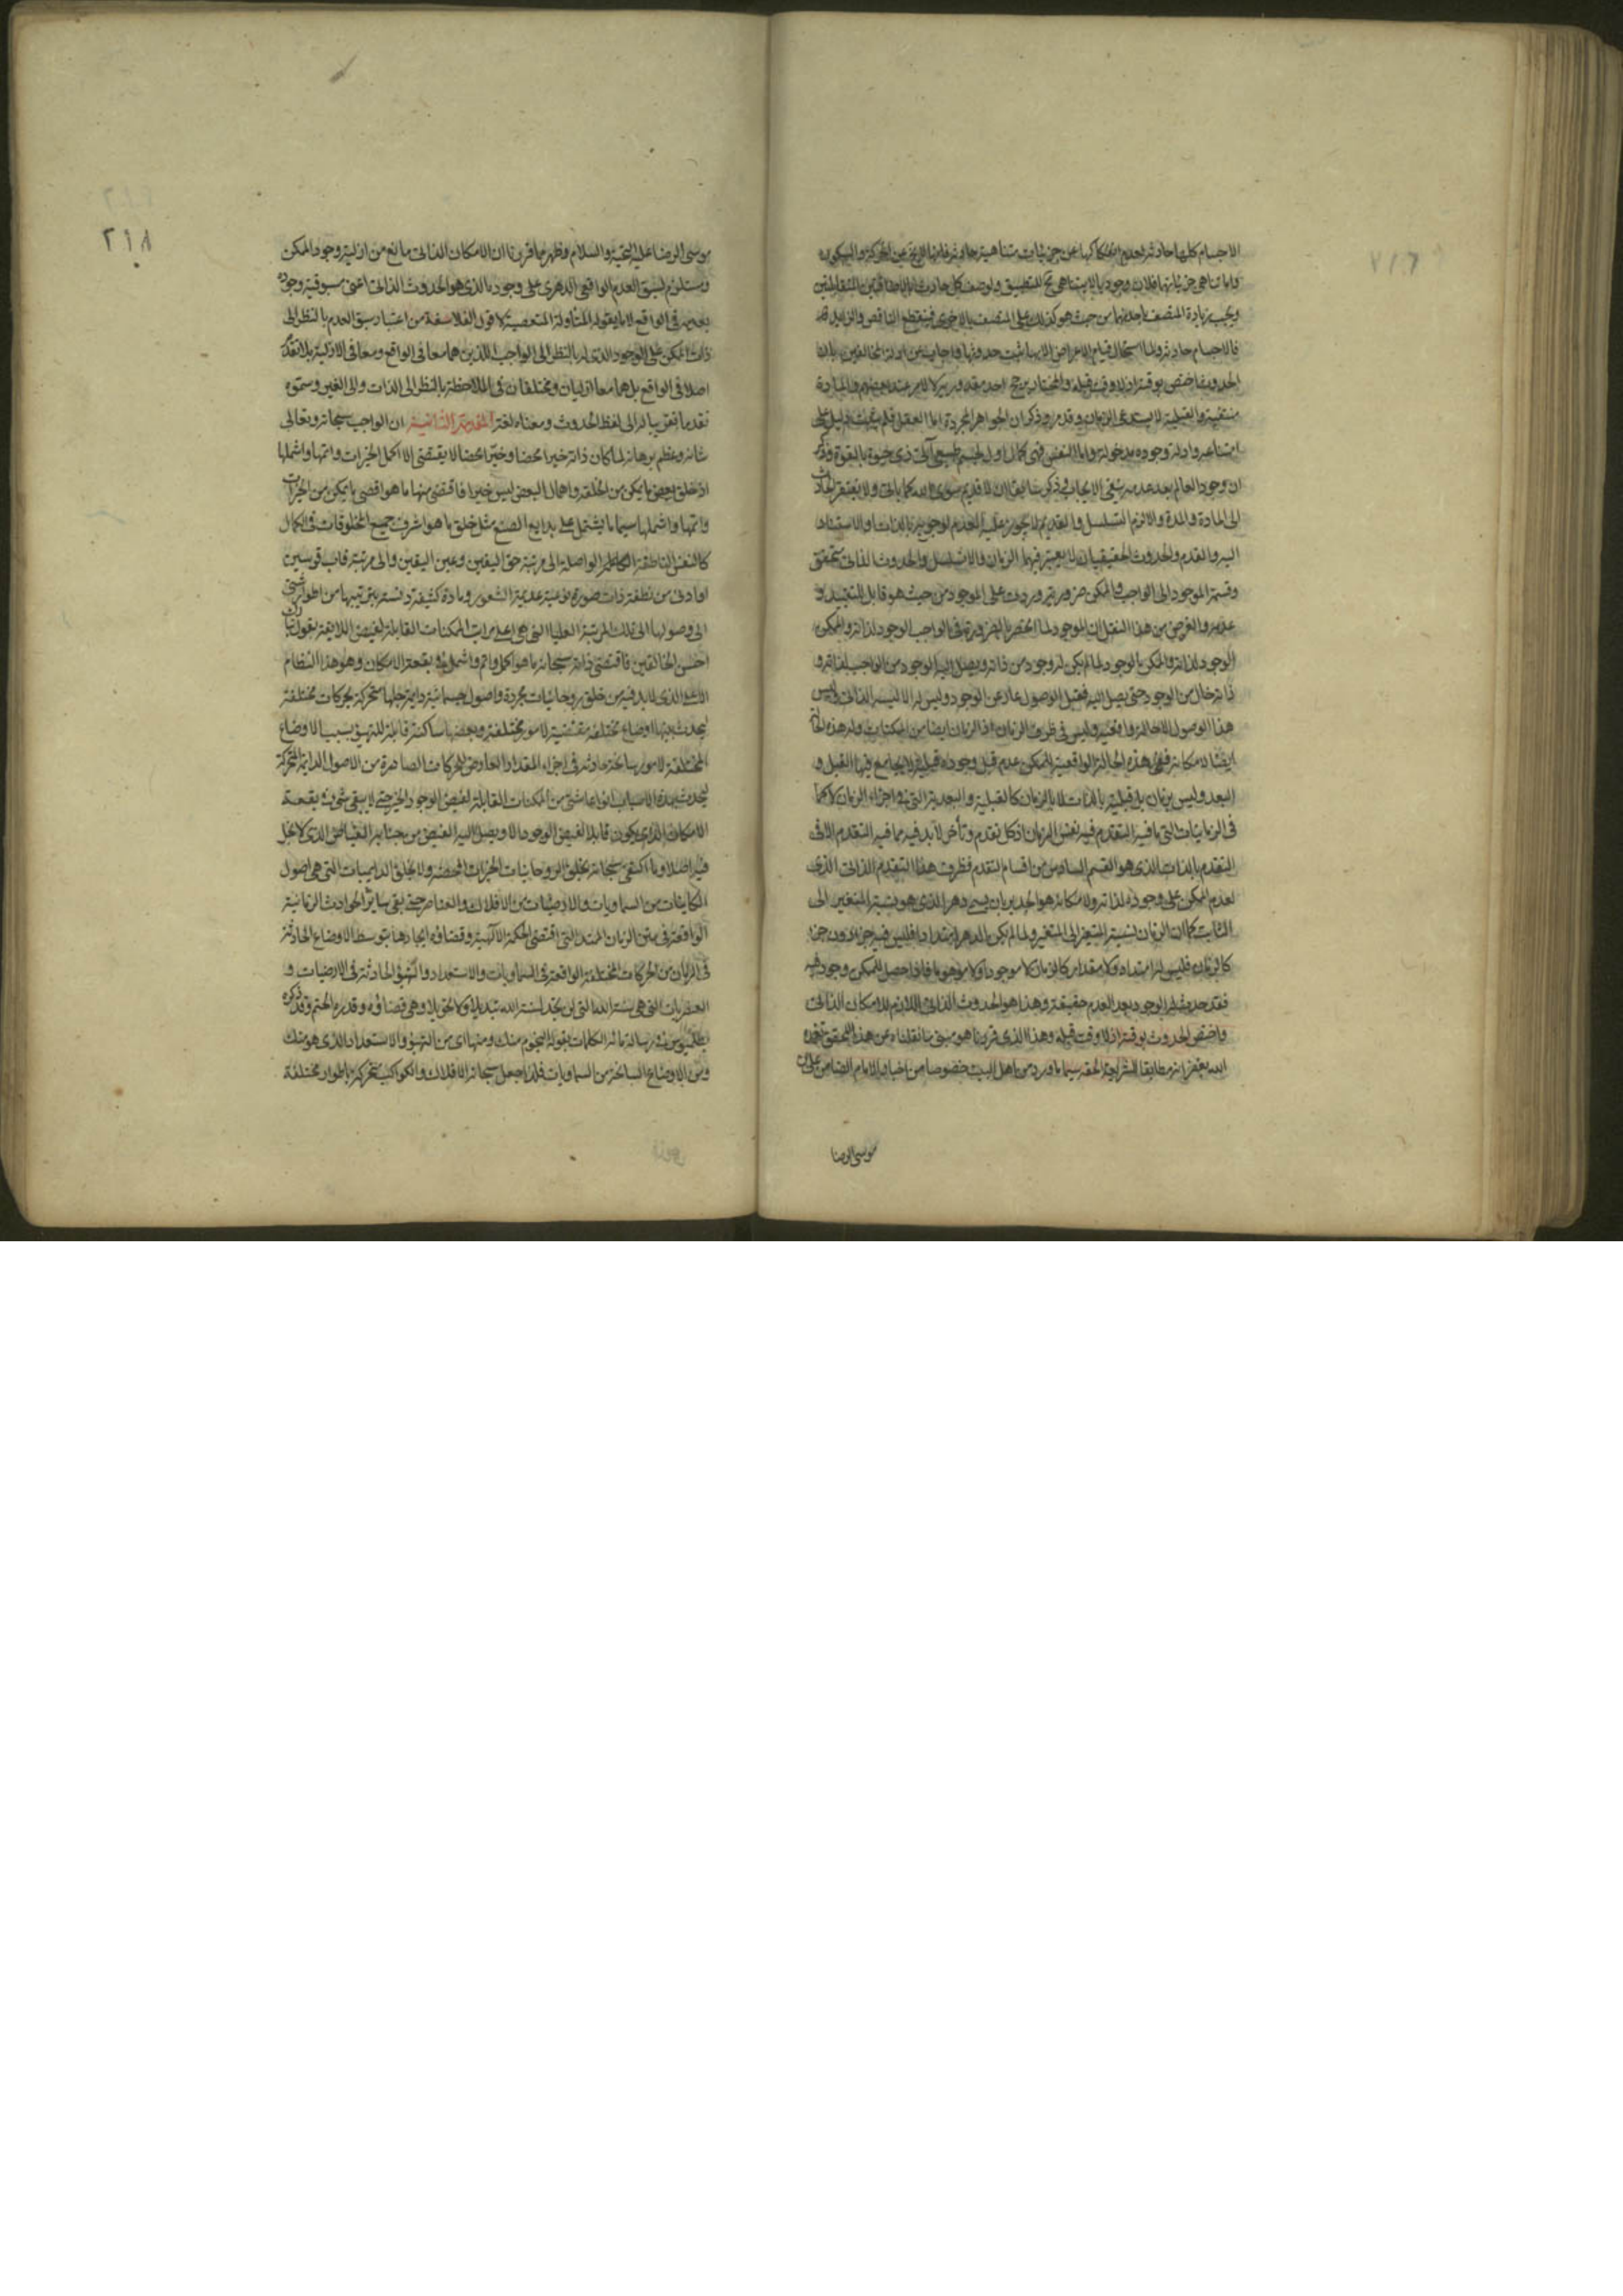 الاجسام كلها حادثة لعدم انفكاكها عن جزئيات متناهية حادثة فانها لا يخ عن الحركة والسكون
واما تناهى جزئياتهما فلان وجود ما لا يتناهى مح للتطبيق ولوصف كل حادث
ويجب زيادة المتصف باحدهما من حيث هو كذلك على المتصف بالاخرى فينقطع الناقص والزايد
فالاجسام حادثة ولما استحال قيام الاعراض الا بها ثبت حدوثها
الحدوث اختص بوقته اذ لا وقت قبله والمختار يرجح احد مقدوريه لا لامر عند بعضهم والمادة
منتفية والقبلية لا يستدعى الزمان وقد مر وذكر ان الجواهر المجردة اما العقل فلم يثبت دليل على
امتناعه وادلة وجوده مدخولة واما النفس فهى كمال اول لجسم طبيعى آلى ذى حيوة بالقوة وذكر
ان وجود العالم بعد عدمه ينفى الايجاب لا قديم سوى الله ولا يفتقر الحادث
الى المادة والمدة والا لزم التسلسل والقديم لا يجوز عليه العدم لوجوبه بالذات او لاستناده
اليه والقدم والحدوث الحقيقيان لا يعتبر فيهما الزمان والا تسلسل والحدوث الذاتى متحقق
وقسمة الموجود الى الواجب والممكن ضرورية وردت على الموجود من حيث هو قابل للتقييد و
عدمه والغرض من هذا النقل ان الموجود لما انحصر بالضرورة فى الواجب الوجود لذاته والممكن
الوجود لذاته والممكن بالوجود لما لم يكن له وجود من ذاته ويصل اليه الوجود من الواجب لذاته و
ذاته خال من الوجود حتى يصل اليه فقبل الوصول عار عن الوجود وليس له الا ليسه الذاتى وليس
هذا الوصول الا حالة واقعية وليس فى ظرف الزمان اذ الزمان ايضا من الممكنات وله هذه الحالة
ايضا لامكانه ففى هذه الحالة الواقعية للممكن عدم قبل وجوده قبلية لا يجامع فيها القبل و
البعد وليس بزمان بل قبلية بالذات لا بالزمان كالقبلية والبعدية التى فى اجزاء الزمان لا كما
فى الزمانيات التى ما فيه التقدم فيه نفس الزمان اذ كل تقدم وتأخر لا بد فيه مما فيه التقدم الا فى
التقدم بالذات الذى هو القسم السادس من اقسام التقدم فظرف هذا التقدم الذاتى الذى
لعدم الممكن على وجوده لذاته ولامكانه هو الجدير بان يسمى دهر الذى هو نسبة المتغير الى
الثابت كما ان الزمان نسبة المتغير الى المتغير ولما لم يكن الدهر امتدادا فليس فيه جزء دون جزء
كالزمان فليس له امتداد ولا مقدار كالزمان لا موجودا ولا موهوما فاذا حصل للممكن وجود فيه
فقد حدث له الوجود بعد العدم حقيقة وهذا هو الحدوث الذاتى اللازم للامكان الذاتى
واختص الحدوث بوقته اذ لا وقت قبله وهذا الذى قررنا هو مبتن ما نقلناه عن هذا المحقق تغمده
الله بغفرانه مطابقا للشرايع الحقه سيما ما ورد من اهل البيت خصوصا من اخبار الامام الضامن على بن
موسى الرضا
٢١٨
موسى الرضا عليه التحية والسلام وظهر مما قررنا ان الامكان الذاتى مانع من ازلية وجود الممكن
ومستلزم لسبق العدم الواقعى الدهرى على وجود ما الذى هو الحدوث الذاتى اعنى مسبوقية وجوده
بعدمه فى الواقع لا ما يقوله المتأولة المتعصبة لاقوال الفلاسفة من اعتبار سبق العدم بالنظر الى
ذات الممكن على الوجود الذى له بالنظر الى الواجب اللذين هما معا فى الواقع ومعا فى الازلية بلا تقدم
اصلا فى الواقع بل هما معا ازليان ومختلفان فى الملاحظة بالنظر الى الذات والى الغير وسموه
تقدما تقريبا له الى لفظ الحدوث ومعناه لغة المقدمة الثانية ان الواجب سبحانه وتعالى
شانه وعظم برهانه لما كان ذاته خيرا محضا وخيّرا محضا لا يقتضى الا اكمل الخيرات واتمها واشملها
اذ خلق بعض ما يمكن من الخلقه واهمال البعض ليس خيرا فاقتضى منها ما هو اقصى ما يمكن من الخيرات
واتمها واشملها سيما ما يشتمل على بدايع الصنع مثل خلق ما هو اشرف جميع المخلوقات فى الكمال
كالنفس الناطقة الكاملة الواصلة الى مرتبة حق اليقين وعين اليقين والى مرتبة قاب قوسين
او ادنى من نطفة ذات صورة نوعية عديمة الشعور ومادة كثيفة دنسة بترتيبها من اطوار شتى
الى وصولها الى تلك المرتبة العليا التى هى اعلى مراتب الممكنات القابلة لفيض اللايقة بقول تبارك
احسن الخالقين فاقتضى ذاته سبحانه ما هو اكمل واتم واشمل فى بقعة الامكان وهو هذا النظام
الذى لا بد فيه من خلق روحانيات مجردة واصول جسمانية دايمة جلها متحركة بحركات مختلفة
ليحدث بينها اوضاع مختلفة مقتضية لامور مختلفة وبعضها ساكنة قابلة للتهيؤ بسبب الاوضاع
المختلفة لامور سانحة حادثة فى اجزاء المقدار العارض للحركات الصادرة من الاصول الدايمة المتحركة
ليحدث بهذه الاسباب انواعا شتى من الممكنات القابلة لفيض الوجود والخير حتى لا يبقى شىء فى بقعة
الامكان الذى يكون قابلا لفيض الوجود الا ويصل اليه الفيض من جنابه الفياض الذى لا بخل
فيه اصلا وما اكتفى سبحانه بخلق الروحانيات الخيرات المحضة ولا بخلق الدايميات التى هى اصول
الكاينات من السماويات والارضيات من الافلاك والعناصر حتى بقى ساير الحوادث الزمانية
الواقعة فى متن الزمان الممتد التى اقتضى الحكمة الآلهية وقضاؤه ايجادها بتوسط الاوضاع الحادثة
فى الزمان من الحركات المختلفة الواقعة فى السماويات والاستعداد والتهيؤ الحادثة فى الارضيات و
العنصريات التى هى سنة الله التى لن تجد لسنة الله تبديلا ولا تحويلا وهى قضاؤه وقدره الحتم وقد ذكره
بطلميوس فى رسالة مائة الكلمات بقوله النجوم منك ومنها اى من التهيؤ والاستعداد الذى هو منك
ومن الاوضاع السانحة من السماويات فلذا جعل سبحانه الافلاك والكواكب متحركة باطوار مختلفة